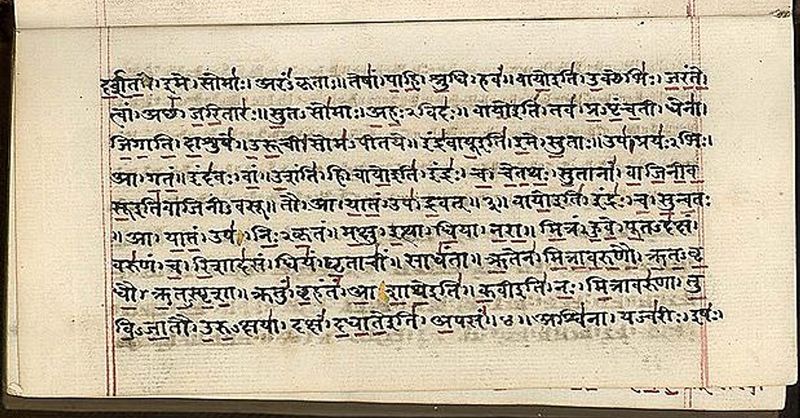 दर्शत । इमे । सोमाः । अरंऽकृताः ॥ तेषां । पाहि । श्रुधि । हवं ॥ वायोइति । उक्थेभिः । जरंते
त्वां । अच्छ । जरितारः ॥ सुतऽसोमाः । अहःऽविदः ॥ वायोइति । तव । प्रऽपृंचती । धेना ।
जिगाति । दाशुषे ॥ उरूची । सोमऽपीतये ॥ इंद्रवायूइति । इमे । सुताः ॥ उप । प्रयःऽभिः ।
आ । गतं ॥ इंदवः । वां । उशंति । हि । वायोइति । इंद्रः । च । चेतथः । सुतानां । वाजिनीव
सूइतिवाजिनीऽवसू ॥ तौ । आ । यातं । उप । द्रवत् ॥ ३ ॥ वायोइति । इंद्रः । च । सुन्वतः
॥ आ । यातं । उप । निःऽकृतं ॥ मक्षु । इत्था । धिया । नरा ॥ मित्रं । हुवे । पूतऽदक्षं
वरुणं । च । रिशादसं ॥ धियं । घृताचीं । साधंता ॥ ऋतेन । मित्रावरुणौ । ऋतऽवृ
धौ । ऋतऽस्पृशा ॥ क्रतुं । बृहंतं । आशाथेइति ॥ कवीइति । नः । मित्रावरुणा । तु
विऽजातौ । उरुऽक्षया । दक्षं । दधातेइति । अपसं ॥ ४ ॥ अश्विना । यज्वरीः । इषः ।